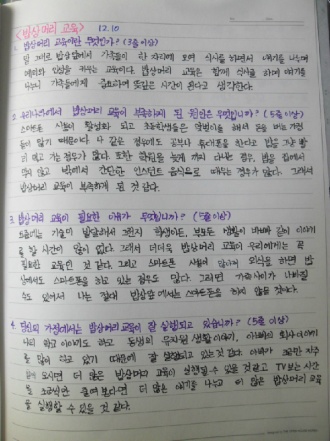 <밥상머리 교육> 12.10
1. 밥상머리 교육이란 무엇인가? (3줄 이상)
말 그대로 밥상에서 가족들이 한 자리에 모여 식사를 하면서 얘기를 나누며
예의와 인성을 키우는 교육이다. 밥상머리 교육은 함께 식사를 하며 얘기를
나누니 가족들에게 중요하며 뜻깊은 시간이 된다고 생각한다.
2. 우리나라에서 밥상머리 교육이 부족하게 된 원인은 무엇입니까? (5줄 이상)
스마트폰 시장이 활성화 되고 초등학생들은 맞벌이를 해서 돈을 버는 가정
들이 많기 때문이다. 나 같은 경우에도 공부나 유튜브를 한다고 밥을 그냥 빨
리 먹고 가는 경우가 많다. 또한 학원을 늦게 까지 다니는 경우, 밥을 집에서
먹지 않고 밖에서 간단한 인스턴트 음식으로 때우는 경우가 많다. 그래서
밥상머리 교육이 부족하게 된 것 같다.
3. 밥상머리 교육이 필요한 이유가 무엇입니까? (5줄 이상)
요즘에는 기술이 발달하서 그런지 학생이든, 부모든 생활이 바빠서 같이 이야기
를 할 시간이 많이 없다. 그래서 더더욱 밥상머리 교육이 우리에게는 꼭
필요한 교육인 것 같다. 그리고 스마트폰 사용이 많아져 외식을 하면 밥
상에서도 스마트폰을 하고 있는 경우도 많다. 그러면 가족사이가 나빠질
수도 있어서 나는 절대 밥상앞에서는 스마트폰을 하지 않을 것이다.
4. 당신의 가정에서는 밥상머리 교육이 잘 실행되고 있습니까? (5줄 이상)
나의 학교 이야기도 하고 동생의 유치원 생활 이야기, 아빠의 회사 이야기
를 많이 하고 있기 때문에 잘 실행되고 있는 것 같다. 아빠가 조금만 자주
집에 오시면 더 많은 밥상머리 교육이 실행될 수 있을 것 같고 TV보는 시간
을 조금씩만 줄여 본다면 더 많은 얘기를 나누고 더 많은 밥상머리 교육
을 실행할 수 있을 것 같다.